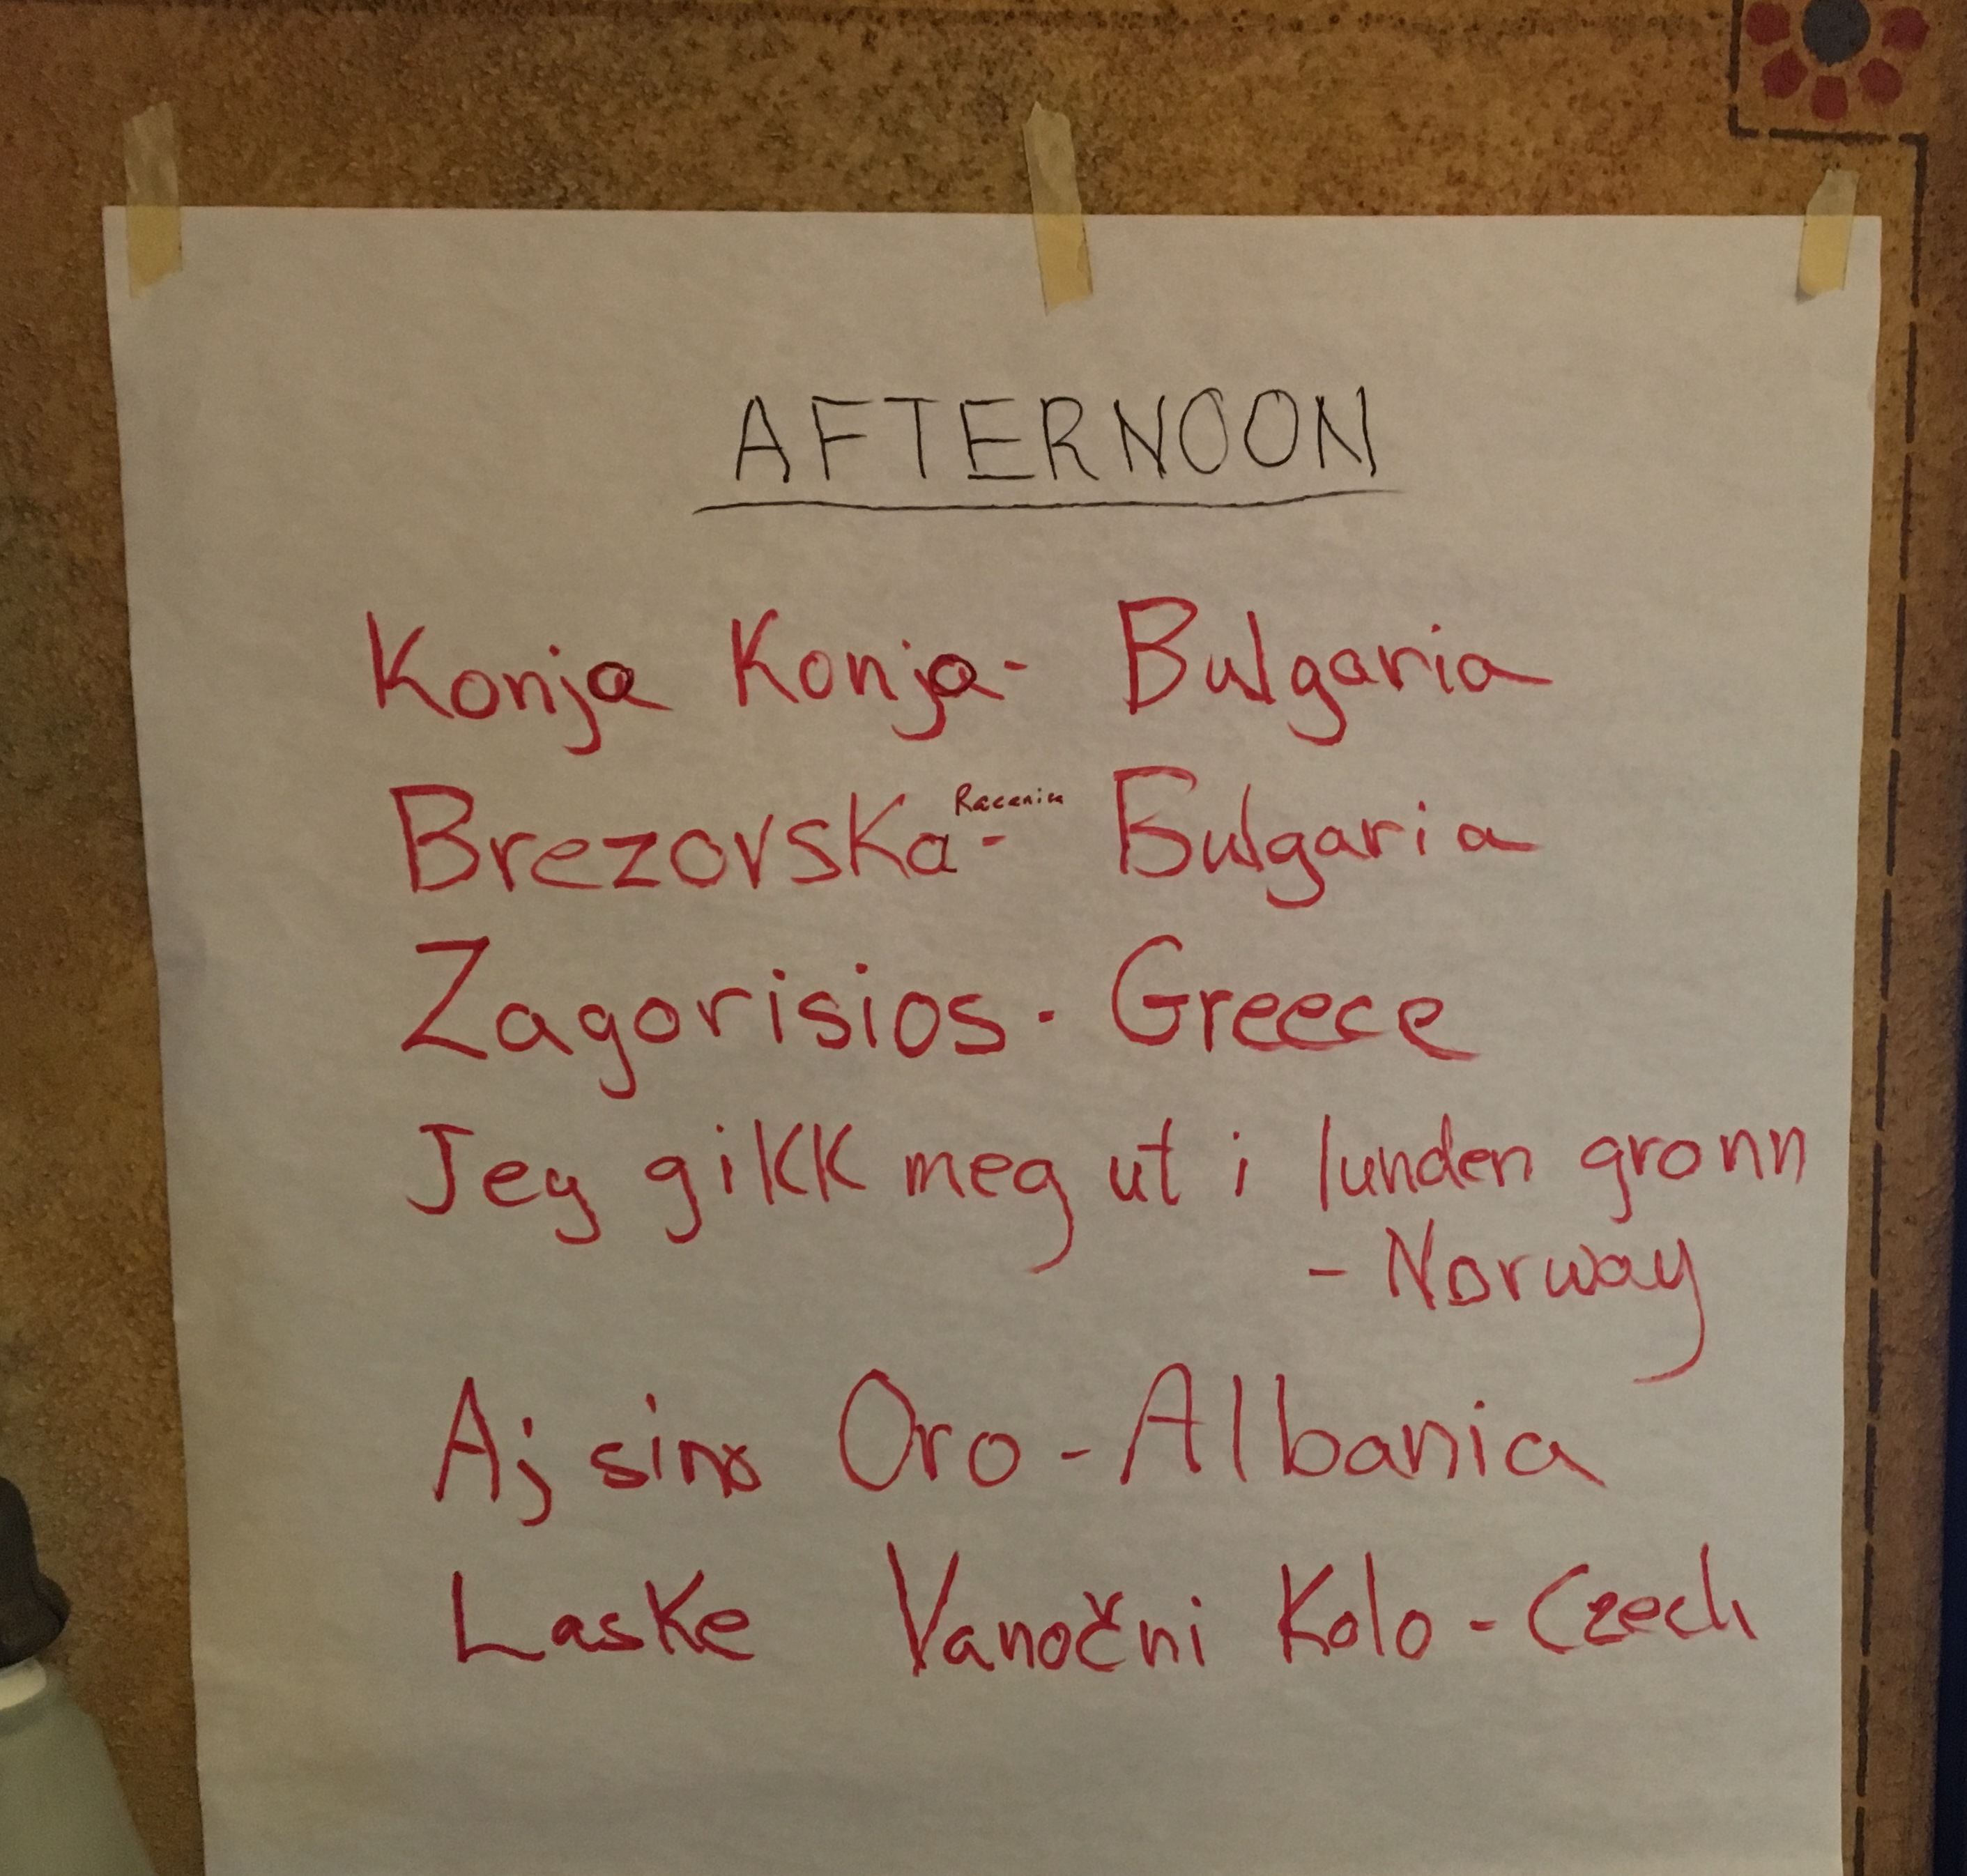 AFTERNOON
Konja Konja - Bulgaria
Brezovska Racenica - Bulgaria
Zagorisios - Greece
Jeg gikk meg ut i lunden gronn
- Norway
Aj sino Oro - Albania
Laske Vanočni Kolo - Czech